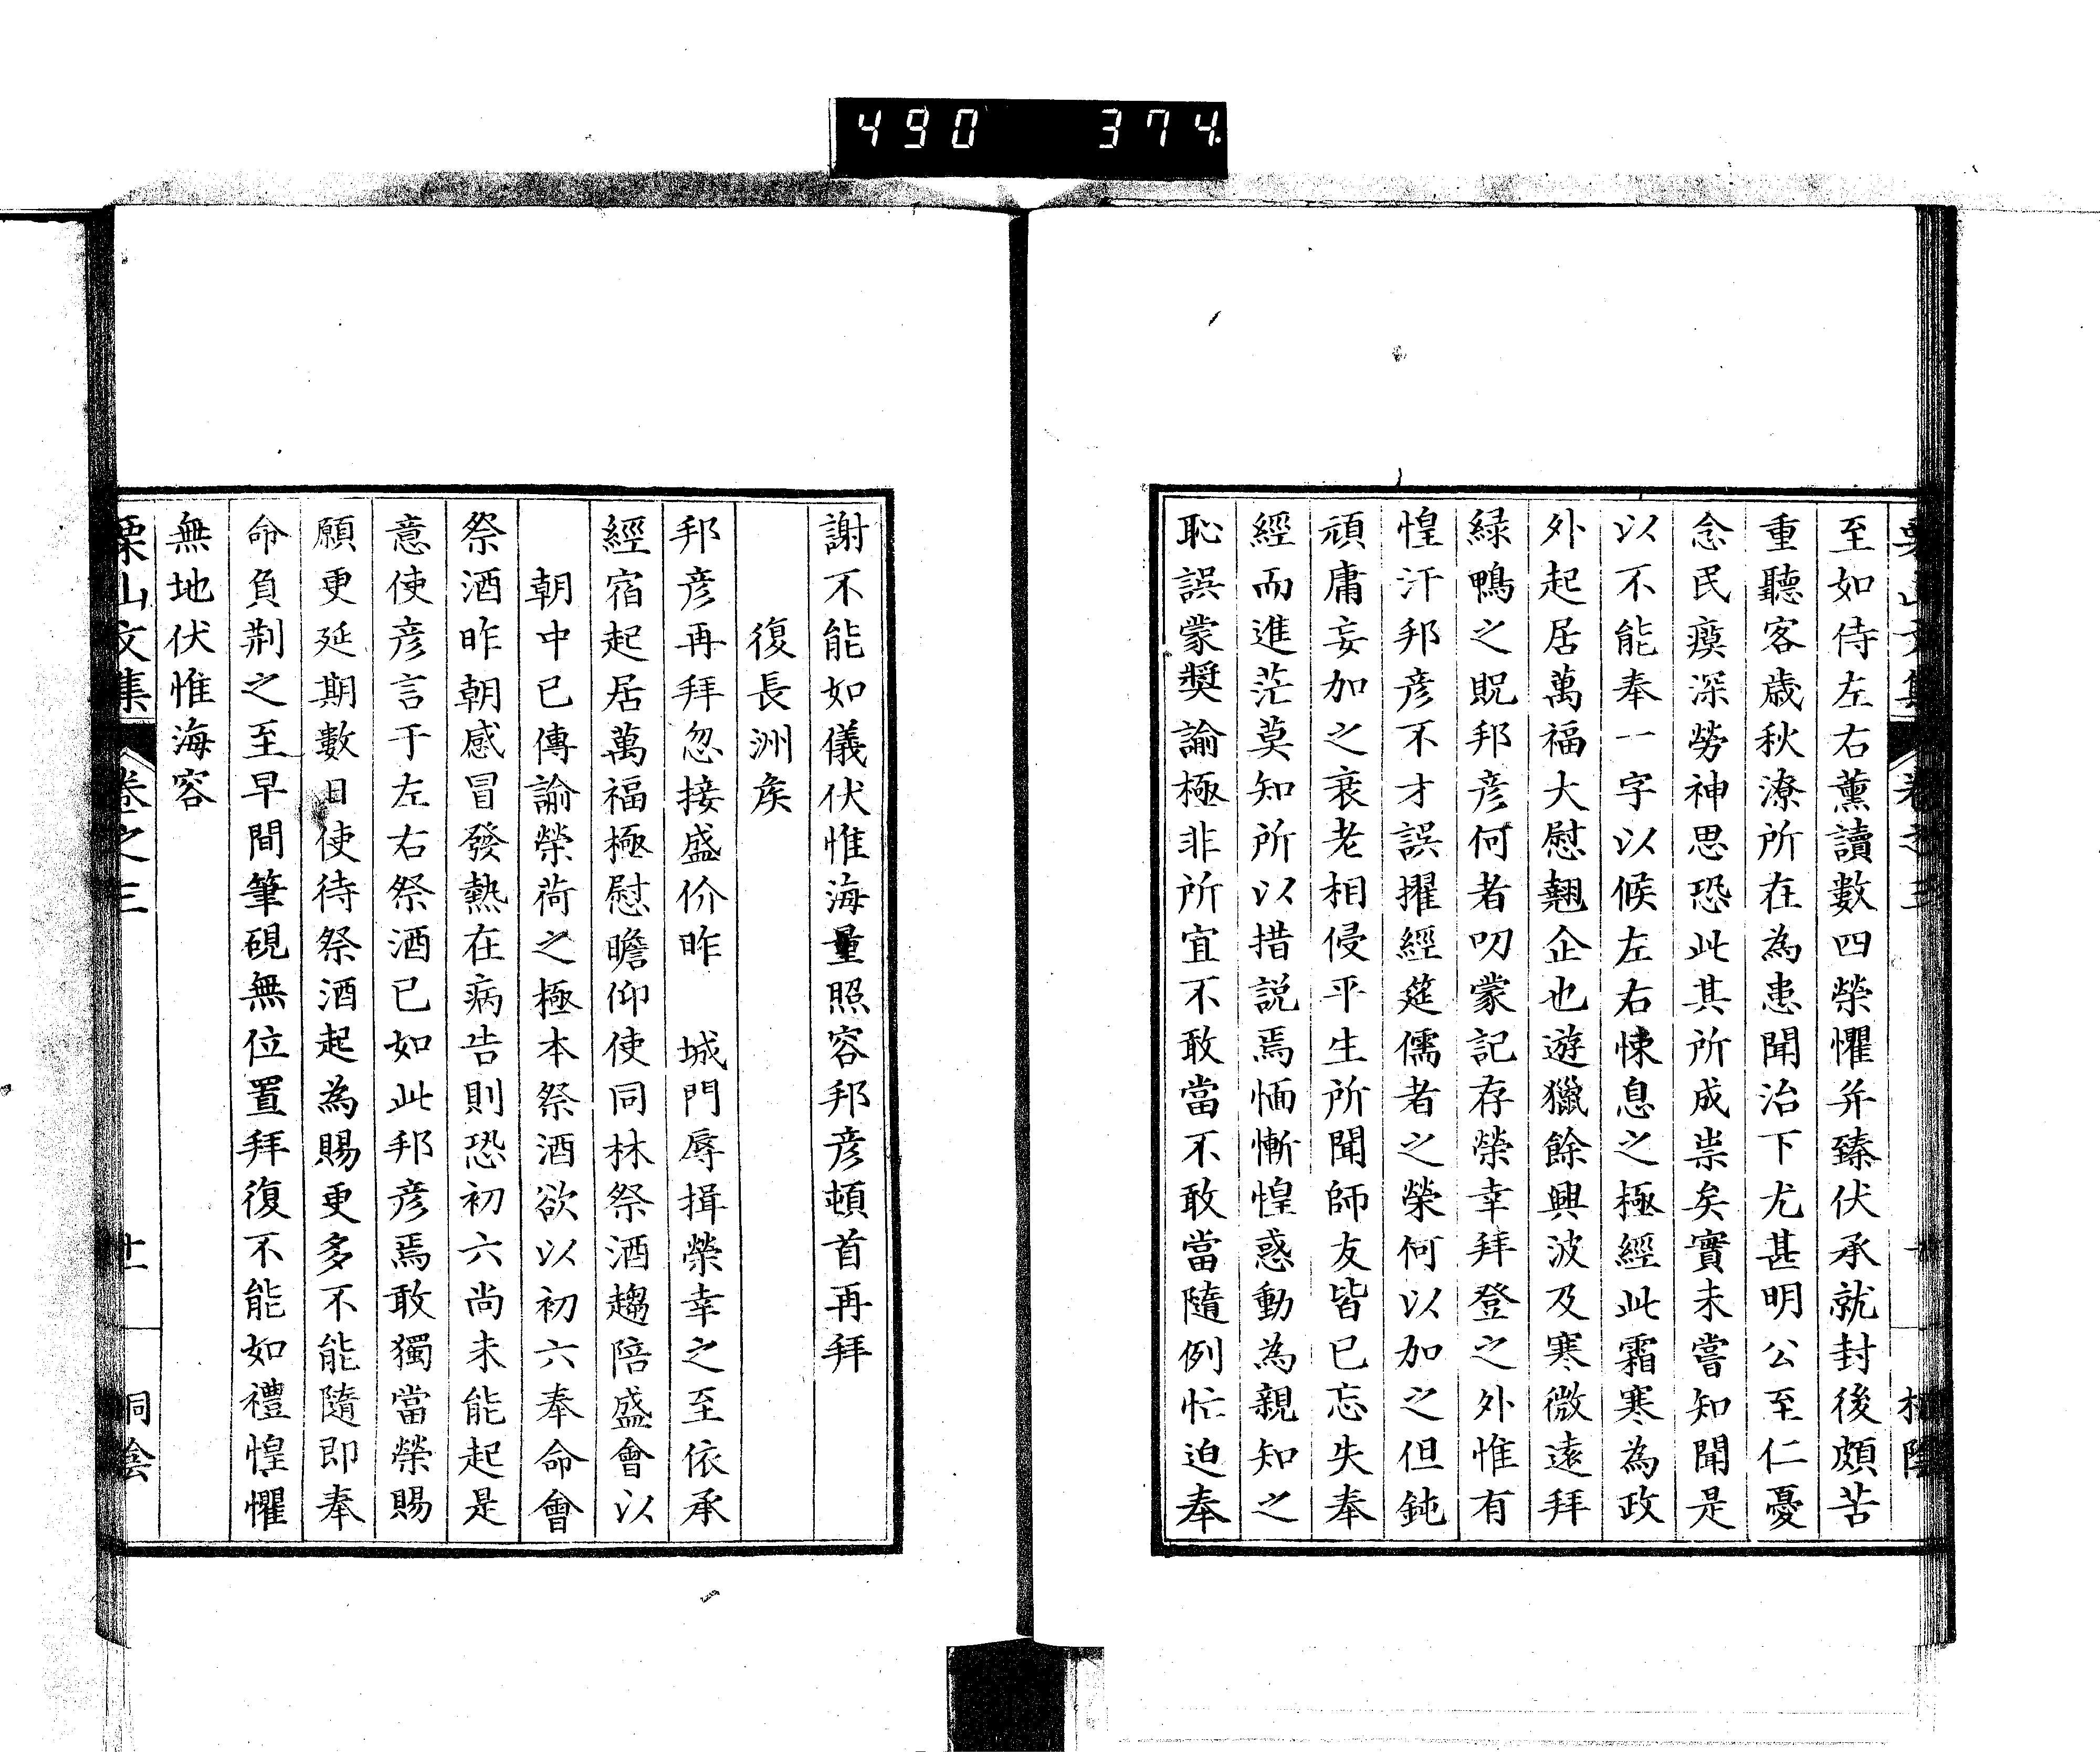 490 374
至如侍左右薰讀數四榮懼弁臻伏承就封後頗苦
重聽客歳秋潦所在為患聞治下尤甚明公至仁憂
念民瘼深勞神思恐此其所成祟矣實未嘗知聞是
以不能奉一字以候左右悚息之極經此霜寒為政
外起居萬福大慰翹企也遊獵餘興波及寒微遠拜
緑鴨之貺邦彦何者叨蒙記存榮幸拜登之外惟有
惶汗邦彦不才誤擢經筵儒者之榮何以加之但鈍
頑庸妄加之衰老相侵平生所聞師友皆已忘失奉
經而進茫莫知所以措説焉愐慚惶惑動為親知之
恥誤蒙奬諭極非所宜不敢當不敢當隨例忙迫奉
謝不能如儀伏惟海量照容邦彦頓首再拜
復長洲矦
邦彦再拜忽接盛价昨　城門辱揖榮幸之至依承
經宿起居萬福極慰瞻仰使同林祭酒趨陪盛會以
朝中已傳諭榮荷之極本祭酒欲以初六奉命會
祭酒昨朝感冒發熱在病告則恐初六尚未能起是
意使彦言于左右祭酒已如此邦彦焉敢獨當榮賜
願更延期數日使待祭酒起為賜更多不能隨即奉
命負荆之至早間筆硯無位置拜復不能如禮惶懼
無地伏惟海容
栗山文集 卷之三 十一 桐陰